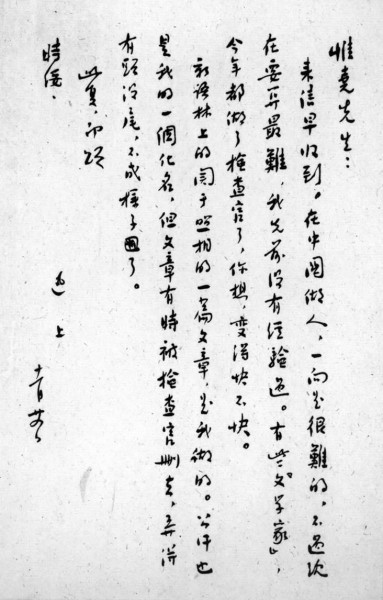 惟堯先生：
來信早收到。在中國做人，一向是很難的，不過現
在要算最難，我先前没有經驗過。有些「文學家」，
今年都做了檢查官了，你想，變得快不快。
新語林上的關于照相的一篇文章，是我做的。公汗也
是我的一個化名，但文章有時被檢查官刪去，弄得
有頭没尾，不成樣子了。
此复，即頌
時綏。
迅 上